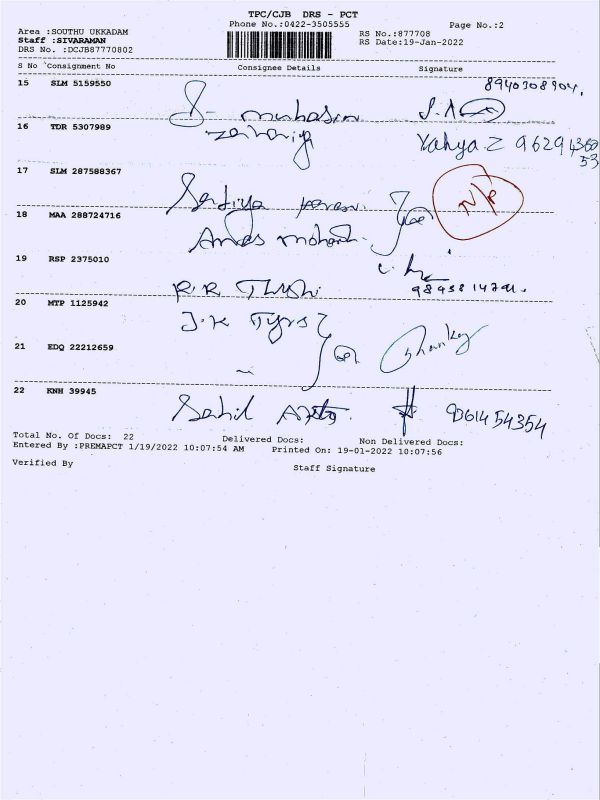 TPC/CJB DRS - PCT
Phone No.:0422-3505555 Page No.:2
Area :SOUTHU UKKADAM
Staff :SIVARAMAN
DRS No. :DCJB87770802
RS No.:877708
RS Date:19-Jan-2022
S No Consignment No Consignee Details Signature
15 SLM 5159550
S- muhasin 8940308904.
16 TDR 5307989
zahariya Yahya Z 96294360
53
17 SLM 287588367
N/P
18 MAA 288724716
Anas
19 RSP 2375010
R.R 9893814791.
20 MTP 1125942
J.K Tyrs
21 EDQ 22212659
Shankar
22 KNH 39945
Sahil 9061454354
Total No. Of Docs: 22 Delivered Docs: Non Delivered Docs:
Entered By :PREMAPCT 1/19/2022 10:07:54 AM Printed On: 19-01-2022 10:07:56
Verified By Staff Signature